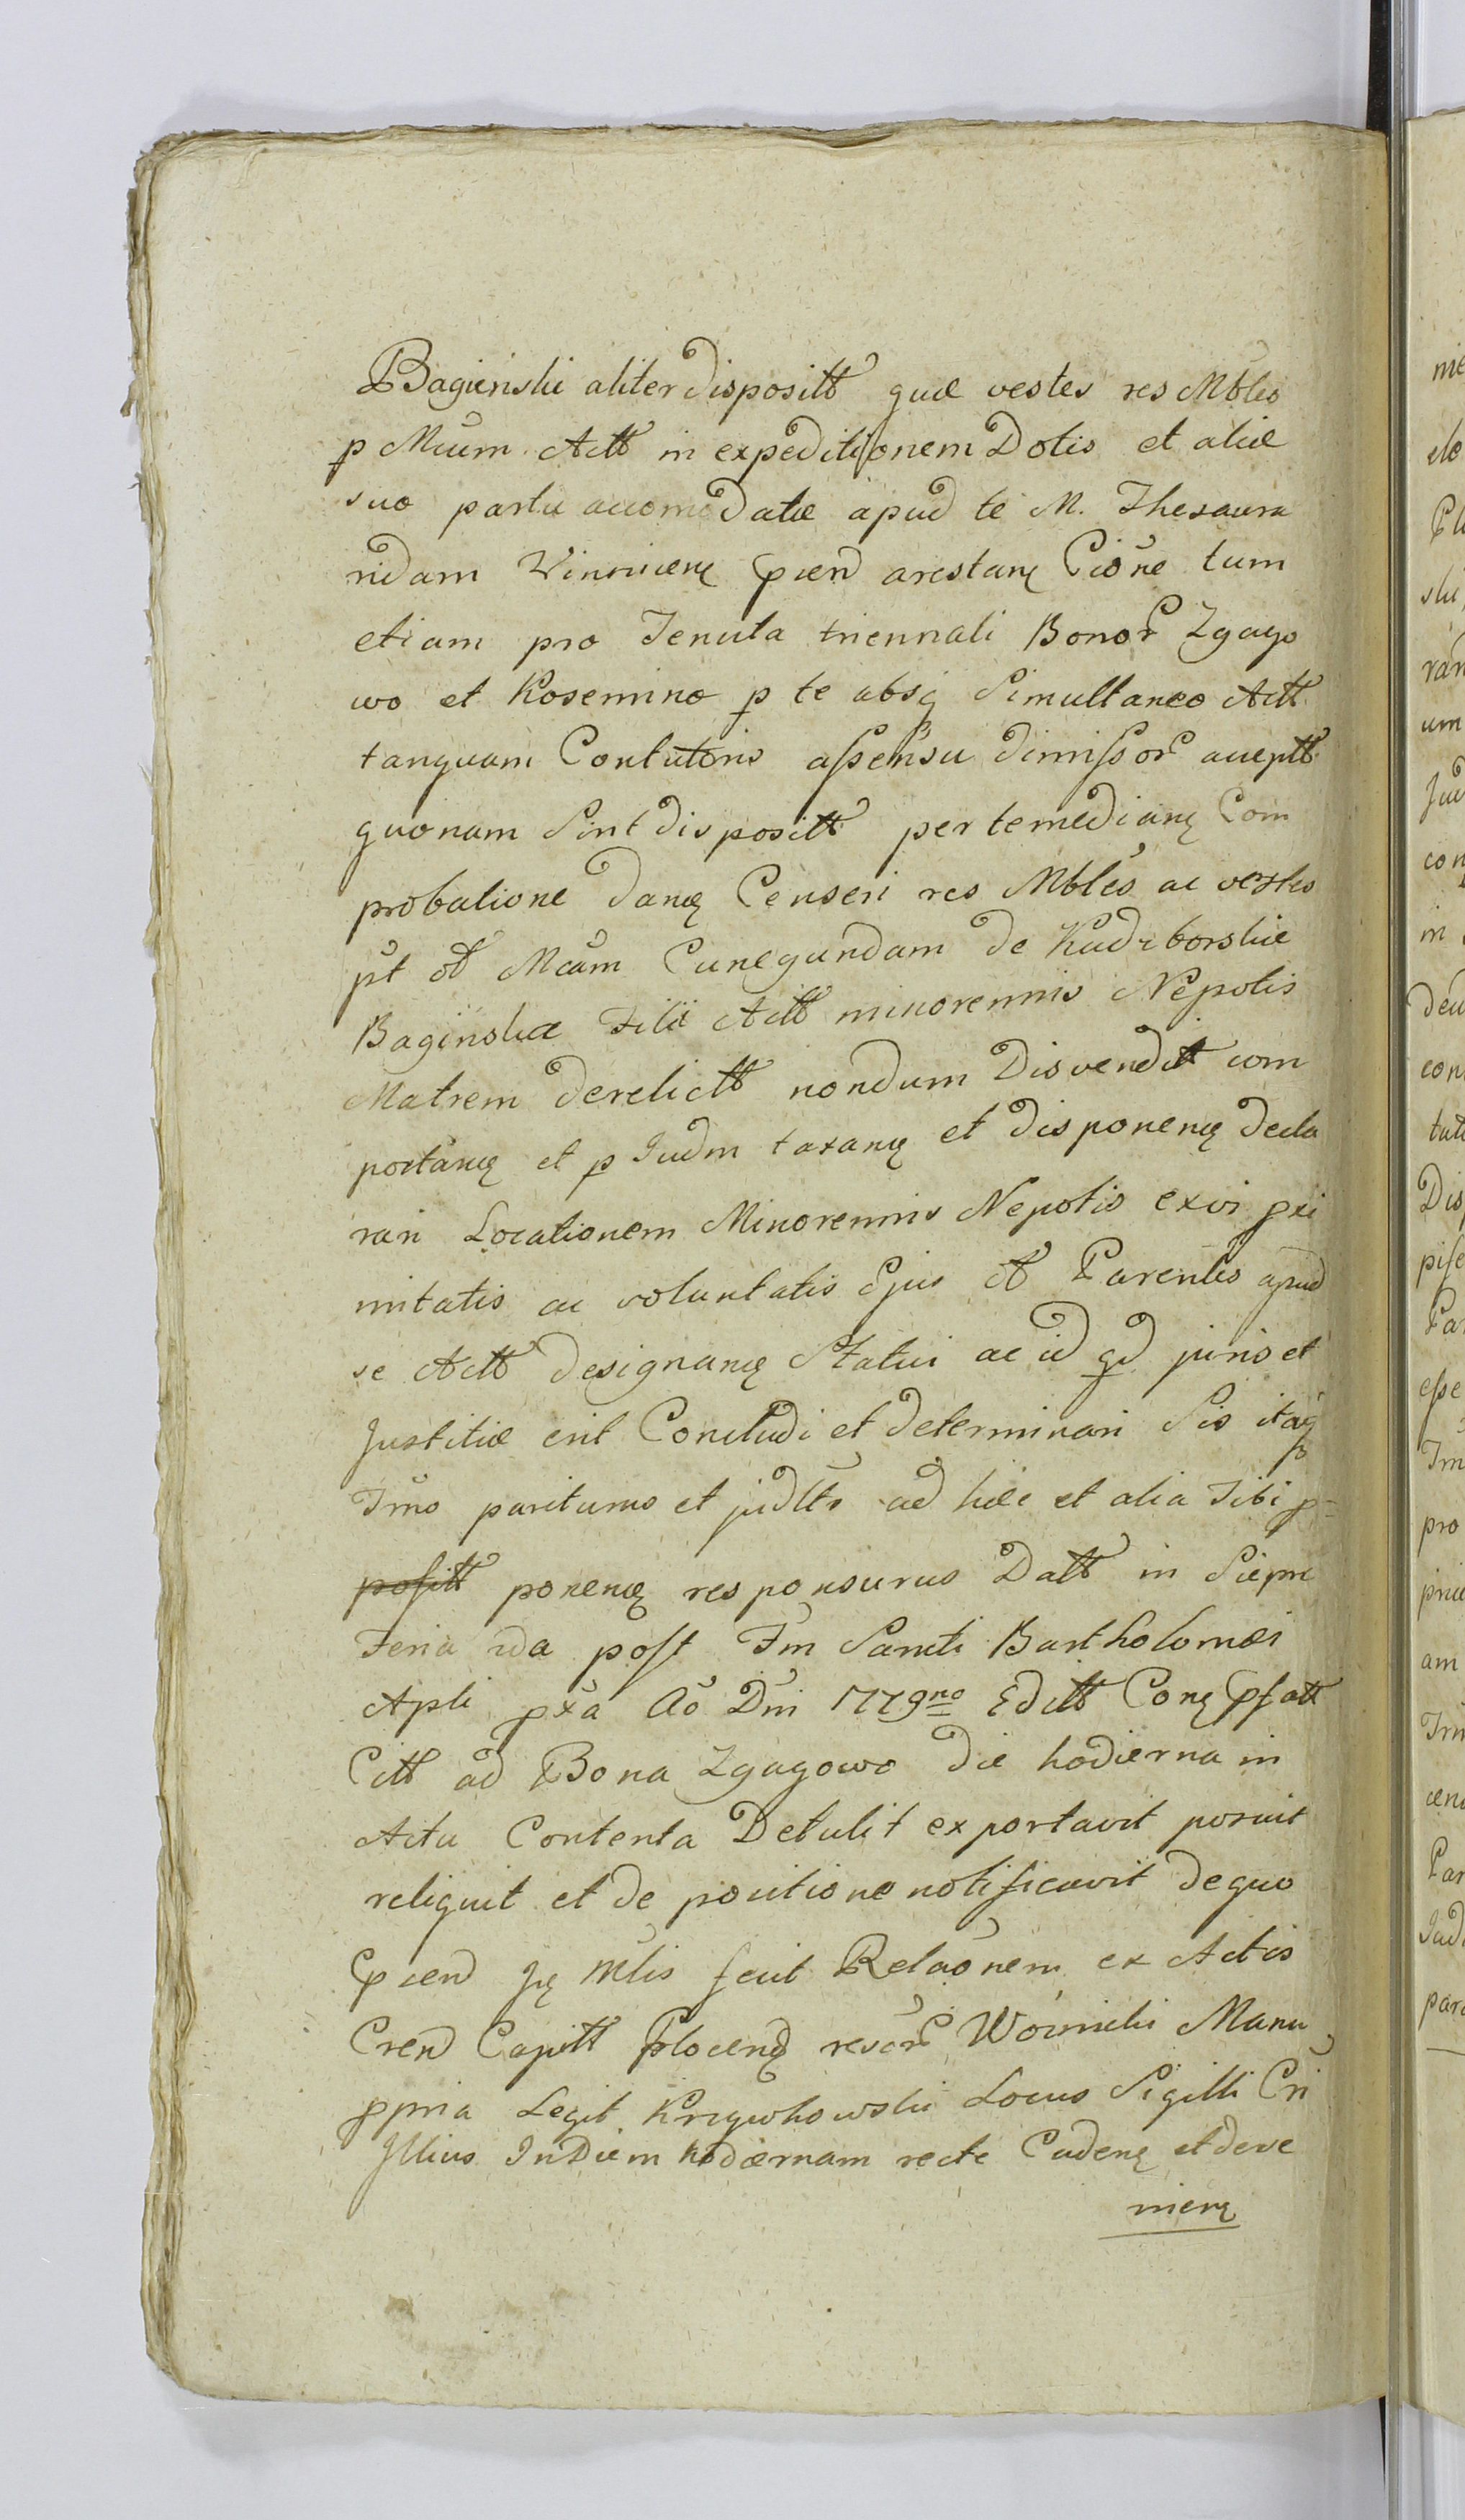 Bagienski aliter disposittt quæ vestes res Mbles
p Mcum Acttt in expeditionem Dotis et aliæ
suo partu accomodatæ apud te M. Thesaura
ridam Winnicenę pcend arestanę Cione tum
etiam pro Tenuta triennali Bonor Zgago
wo et Kosemino p te absq Simultaneo Acttt
tanquam Contutoris assensu dimissor accepttt
quonam Sint disposittt per te medianę Com
probatione danę Censeri res Mbles ac vestes
pt ob Mcam Cunegundam de Kadzborskie
Baginska Filii Acttt minorennis Nepotis
Matrem derelicttt nondum Disvendittt com
portanę et p Judm taxanę et disponenę decla
rari Locationem Minorennis Nepotis ex vi pxi
mitatis ac voluntatis Ejus ob Parentis apud
se Acttt designanę Statui ac id qd juris et
Justitiæ erit Concludi et determinari Sis itaq
Trmo pariturus et judltr ad hæc et alia Tibi p-
posittt ponenę responsurus Dattt in Sieprc
Feria 2da post Fm Sancti Bartholomæi
Apli pxa Ao Dni 1779no Edittt Conę Psattt
Cittt ad Bona Zgagowo die hodierna in
Actu Contenta Detulit exportavit posuit
reliquit et de positione notificavit de quo
pcend Ję Mlis fecit Relaonem ex Actis
Crend Capittt Plocenę resor Woinicki Manu
ppria Legit Krzywkowski Locus Sigilli Cri
Illius In Diem hodiernam recte Cadenę et deve
nienę
nie
elo
ski,
ran
um
con
in
con
tut
Dis
Pa
esse
pro
am
Par
para